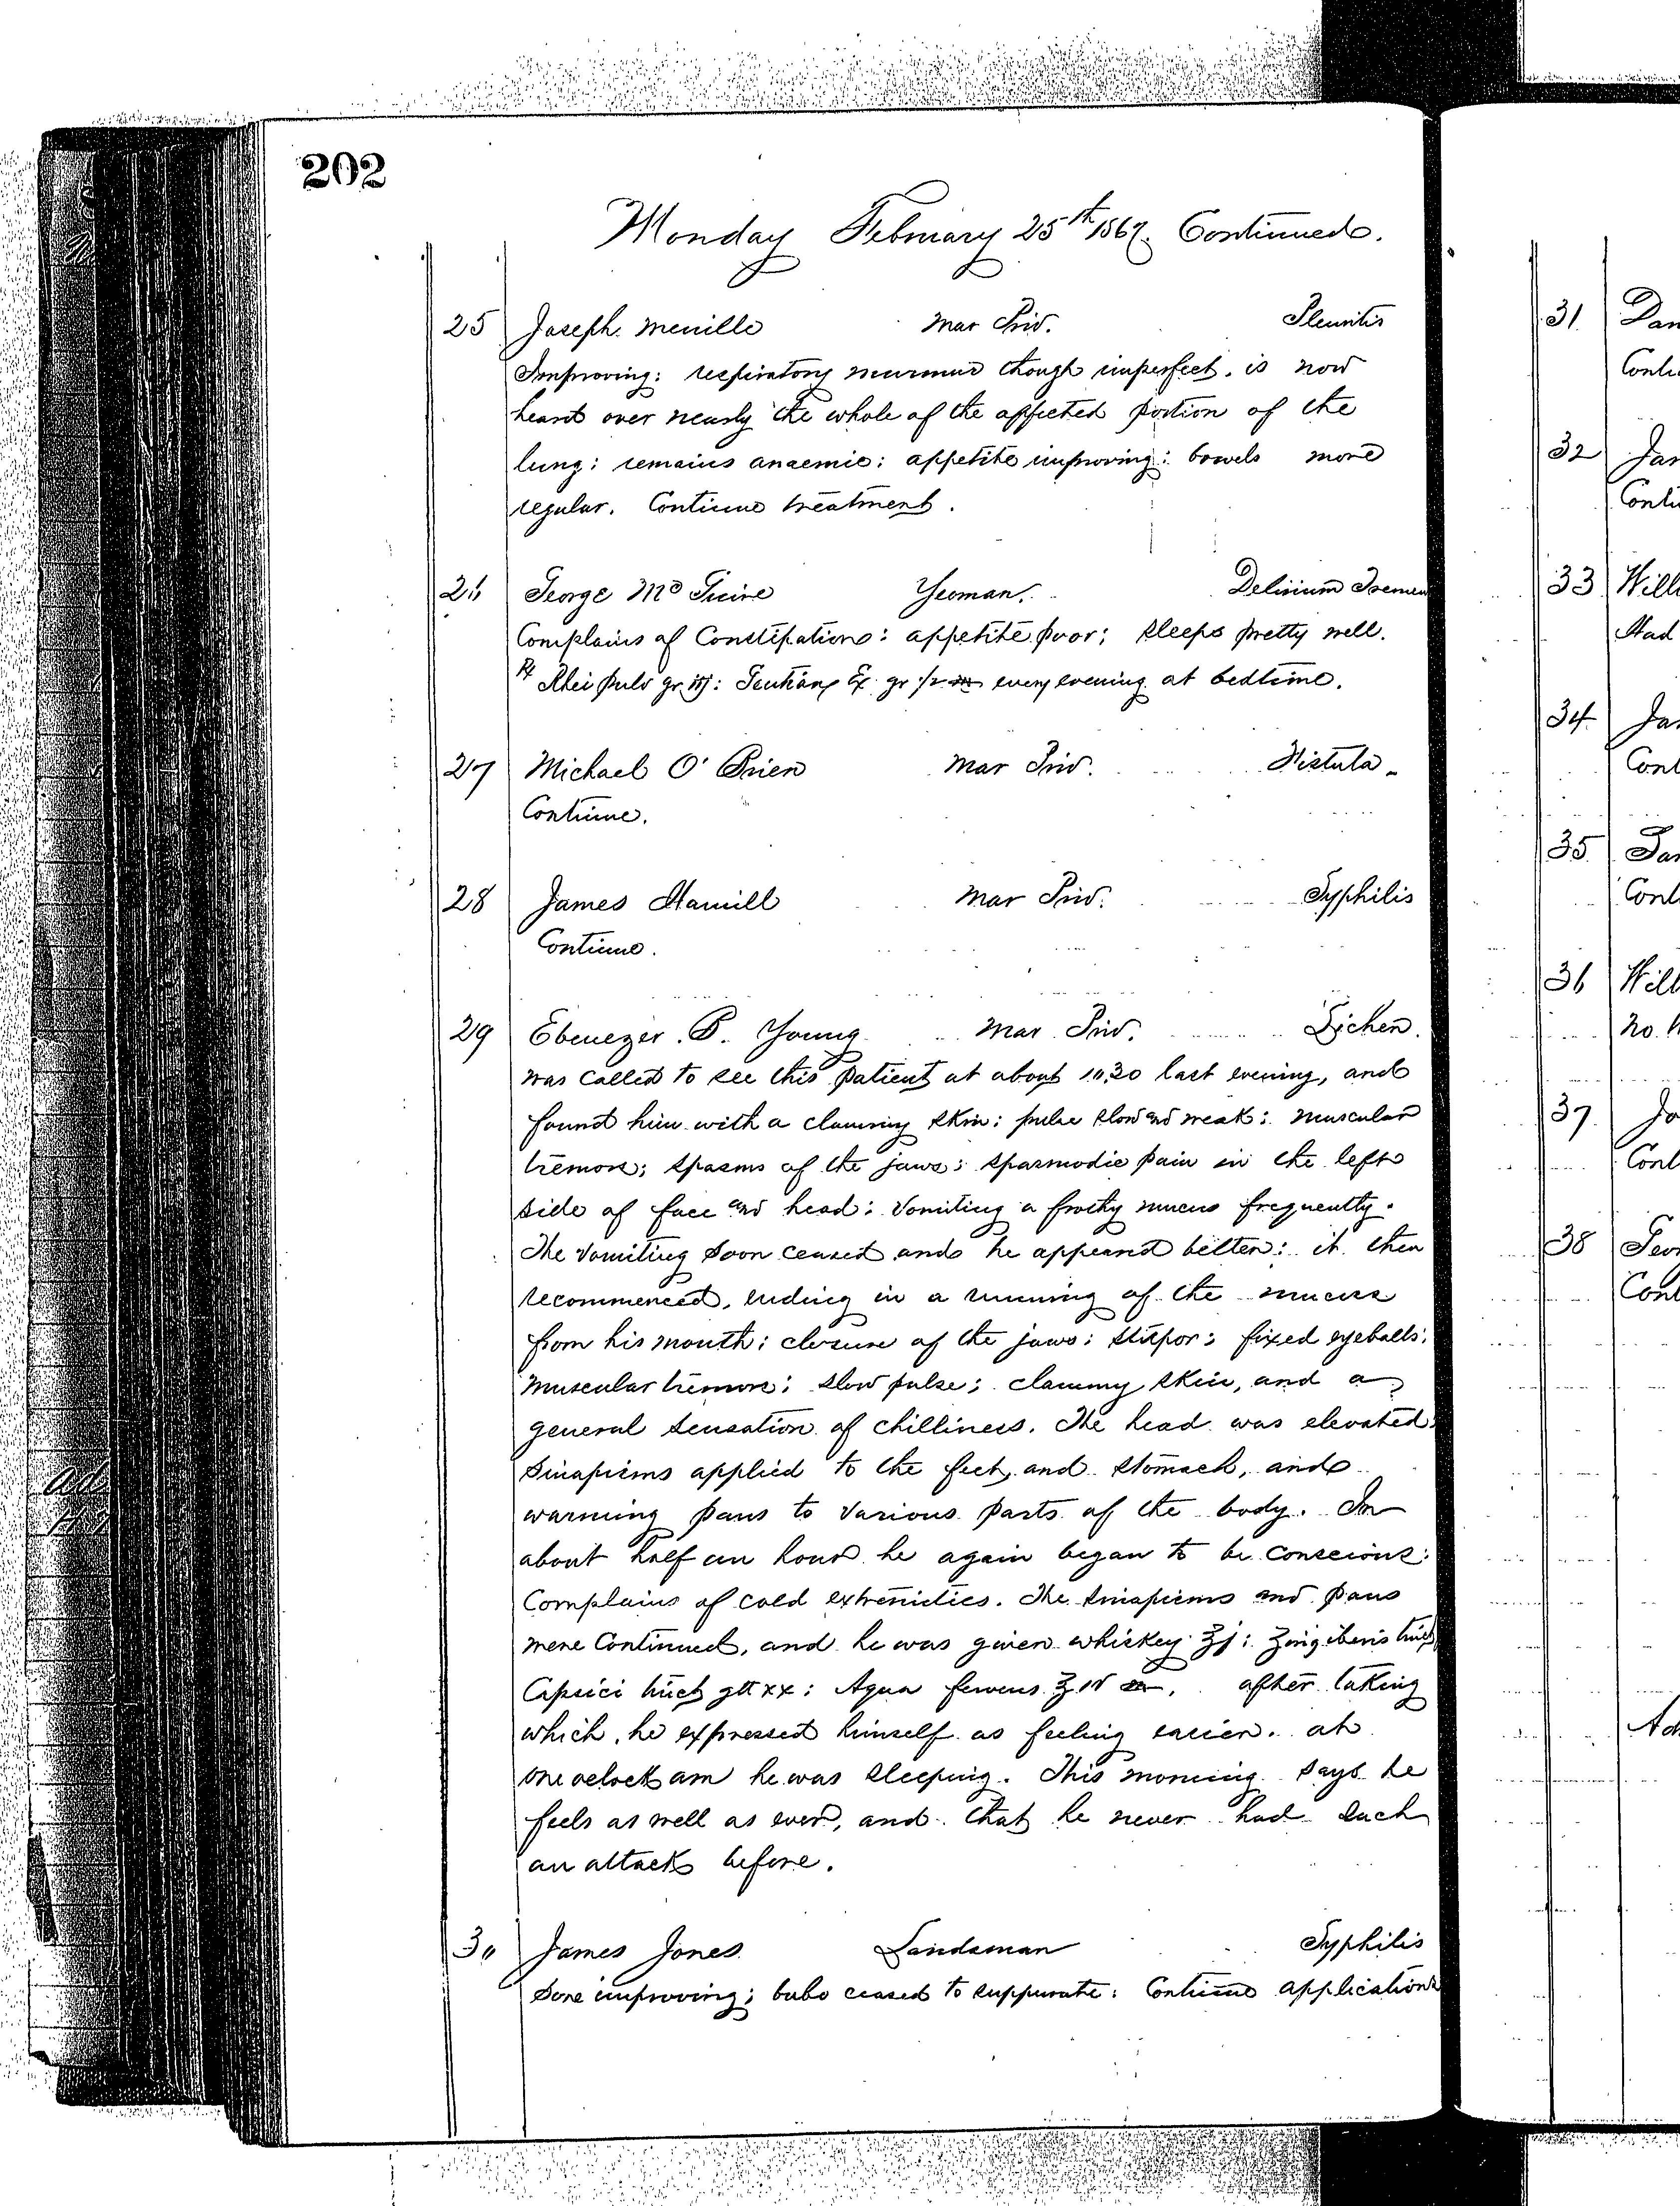 202
Monday February 25th 1867. Continued.
25 Joseph Menille Mar Priv. Pleuritis
Improving: respiratory murmur though imperfect. is now
heard over nearly the whole of the affected portion of the
lung: remains anaemic: appetite improving: bowels more
regular. Continue treatment.
26 George McGuire Yeoman. Delirium Tremen
Complains of Constipation: appetite poor; sleeps pretty well.
℞ Rhei pulv gr iij: Gentianæ Ex gr ½ every evening at bedtime.
27 Michael O'Brien Mar Priv. Fistula
Continue.
28 James Hamill Mar Priv. Syphilis
Continue.
29 Ebenezer P. Young Mar Priv. Lichen.
was called to see this patient at about 10.30 last evening, and
found him with a clammy skin: pulse slow and weak: muscular
tremors; spasms of the jaws: spasmodic pain in the left
side of face and head: vomiting a frothy mucus frequently.
The vomiting soon ceased and he appeared better: it then
recommenced, ending in a running of the mucus
from his mouth: closure of the jaws: stupor: fixed eyeballs:
muscular tremors: slow pulse; clammy skin, and a
general sensation of chilliness. The head was elevated
sinapisms applied to the feet, and stomach, and
warming pans to various parts of the body. In
about half an hour he again began to be conscious:
Complains of cold extremities. The sinapisms and pans
were Continued, and he was given whiskey ℥j: Zingiberis tinct
Capsici tinct gtt xx: Aqua fervens ℥iv after taking
which, he expressed himself as feeling easier. at
one oclock am he was sleeping. This morning says he
feels as well as ever, and that he never had such
an attack before.
30 James Jones Landsman Syphilis
Sore improving; bubo ceased to suppurate: Continue applications
31 Dan
Conti
32 Jam
Conti
33 Will
Had
34 Ja
Cont
35 Ja
Cont
36 Will
no. 
37 Jo
Cont
38 Geo
Cont
Ad